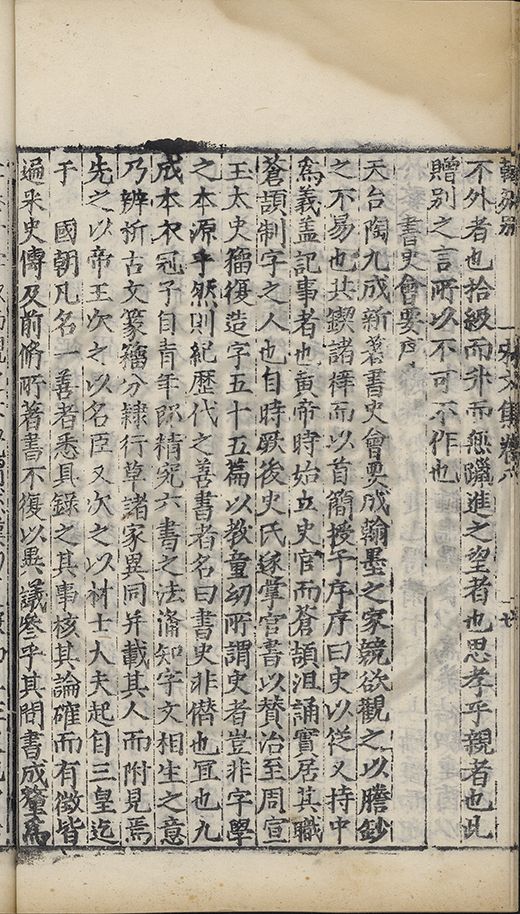 不外者也拾級而升而無躐進之望者也思孝乎親者也此
贈別之言所以不可不作也
書史會要序
天台陶九成新著書史會要成翰墨之家競欲觀之以謄鈔
之不易也共鋟諸梓而以首簡授予序序曰史以從又持中
爲義盖記事者也黃帝時始立史官而蒼頡沮誦實居其職
蒼頡制字之人也自時厥後史氏遂掌官書以贊治至周宣
王太史籀復造字五十五篇以教童幼所謂史者豈非字學
之本源乎然則紀歷代之善書者名曰書史非僭也冝也九
成本衣冠子自青年即精究六書之法備知字文相生之意
乃辨析古文篆籀分隸行草諸家異同并載其人而附見焉
先之以帝王次之以名臣又次之以材士大夫起自三皇迄
于　國朝凡名一善者悉具錄之其事核其論確而有徵皆
遍采史傳及前脩所著書不復以異議參乎其間書成釐爲